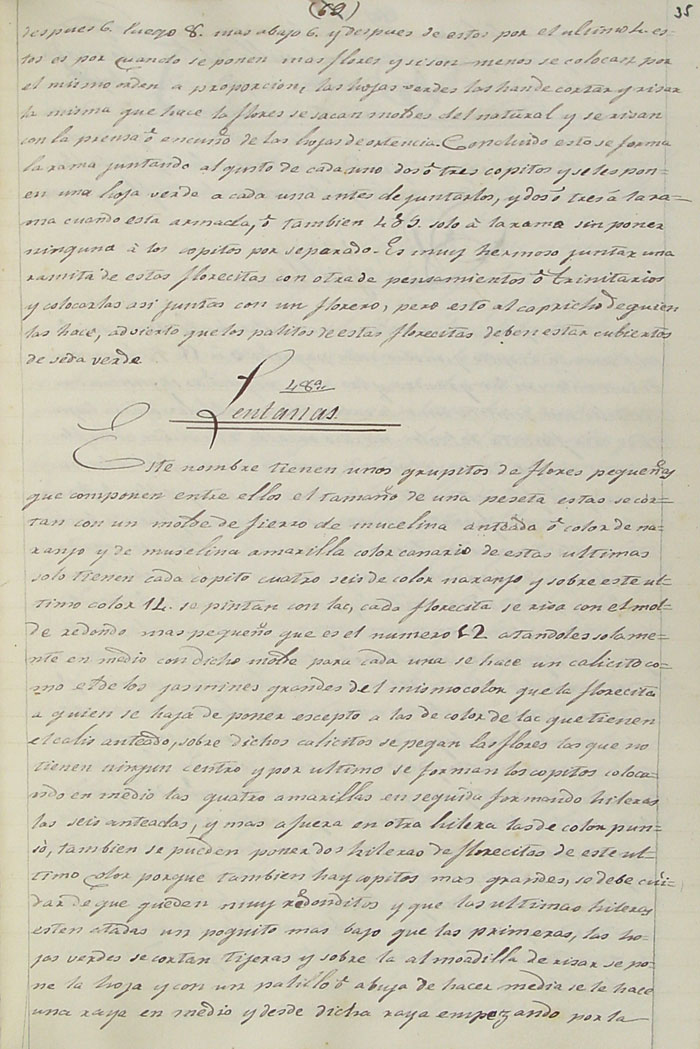 (69)
35
despues 6. luego 8. mas abajo 6. y despues de estos por el ultimo 4. es=
tos es por cuando se ponen mas flores y si son menos se colocan por
el mismo orden a proporcion, las hojas verdes las hande cortar y risar
la misma que hace la flores se sacan moldes del natural y se risan
con la prensa ō encuño de las hojas de ortencia. Concluido esto se forma
la rama juntando al gusto de cada uno dos ō tres copitos y se les pon=
en una hoja verde a cada una antes de juntarlos, y dos ō tres á la ra=
ma cuando esta armada, ō tambien 4 ō 5. solo à la rama sin poner
ninguna à los copitos por separado. Es muy hermoso juntar una
ramita de estas florecitas con otra de pensamientos ō trinitarios
y colocarlas asi juntas con un florero, pero esto al capricho de quien
las hace, advierto que los palitos de estas florecitas deben estar cubiertos
de seda verde
48ª
Lentanas.
Este nombre tienen unos grupitos de flores pequeñas
que componen entre ellos el tamaño de una peseta estas se cor=
tan con un molde de fierro de mucelina anteada ō color de na=
ranjo y de muselina amarilla color canario de estas ultimas
solo tienen cada copito cuatro seis de color naranjo y sobre este ul=
timo color 14. se pintan con lac, cada florecita se risa con el mol=
de redondo mas pequeño que es el numero 12 atandoles solame=
nte en medio con dicho molde para cada una se hace un calicito co=
mo el de los jasmines grandes del mismo color que la florecita
a quien se haja de poner escepto a las de color de lac que tienen
el calis anteado, sobre dichos calicitos se pegan las flores las que no
tienen ningun centro y por ultimo se forman los copitos coloca=
ndo en medio las quatro amarillas en seguida formando hileras
las seis anteadas, y mas afuera en otra hilera las de color pun=
sò, tambien se pueden poner dos hileras de florecitas de este ul=
timo color porque tambien hay copitos mas grandes, se debe cui=
dar de que queden muy redonditos y que las ultimas hileras
esten atadas un poquito mas bajo que las primeras, las ho=
jas verdes se cortan tijeras y sobre la almoadilla de risar se po=
ne la hoja y con un palillo ō abuja de hacer media se le hace
una raya en medio y desde dicha raya empezando por la